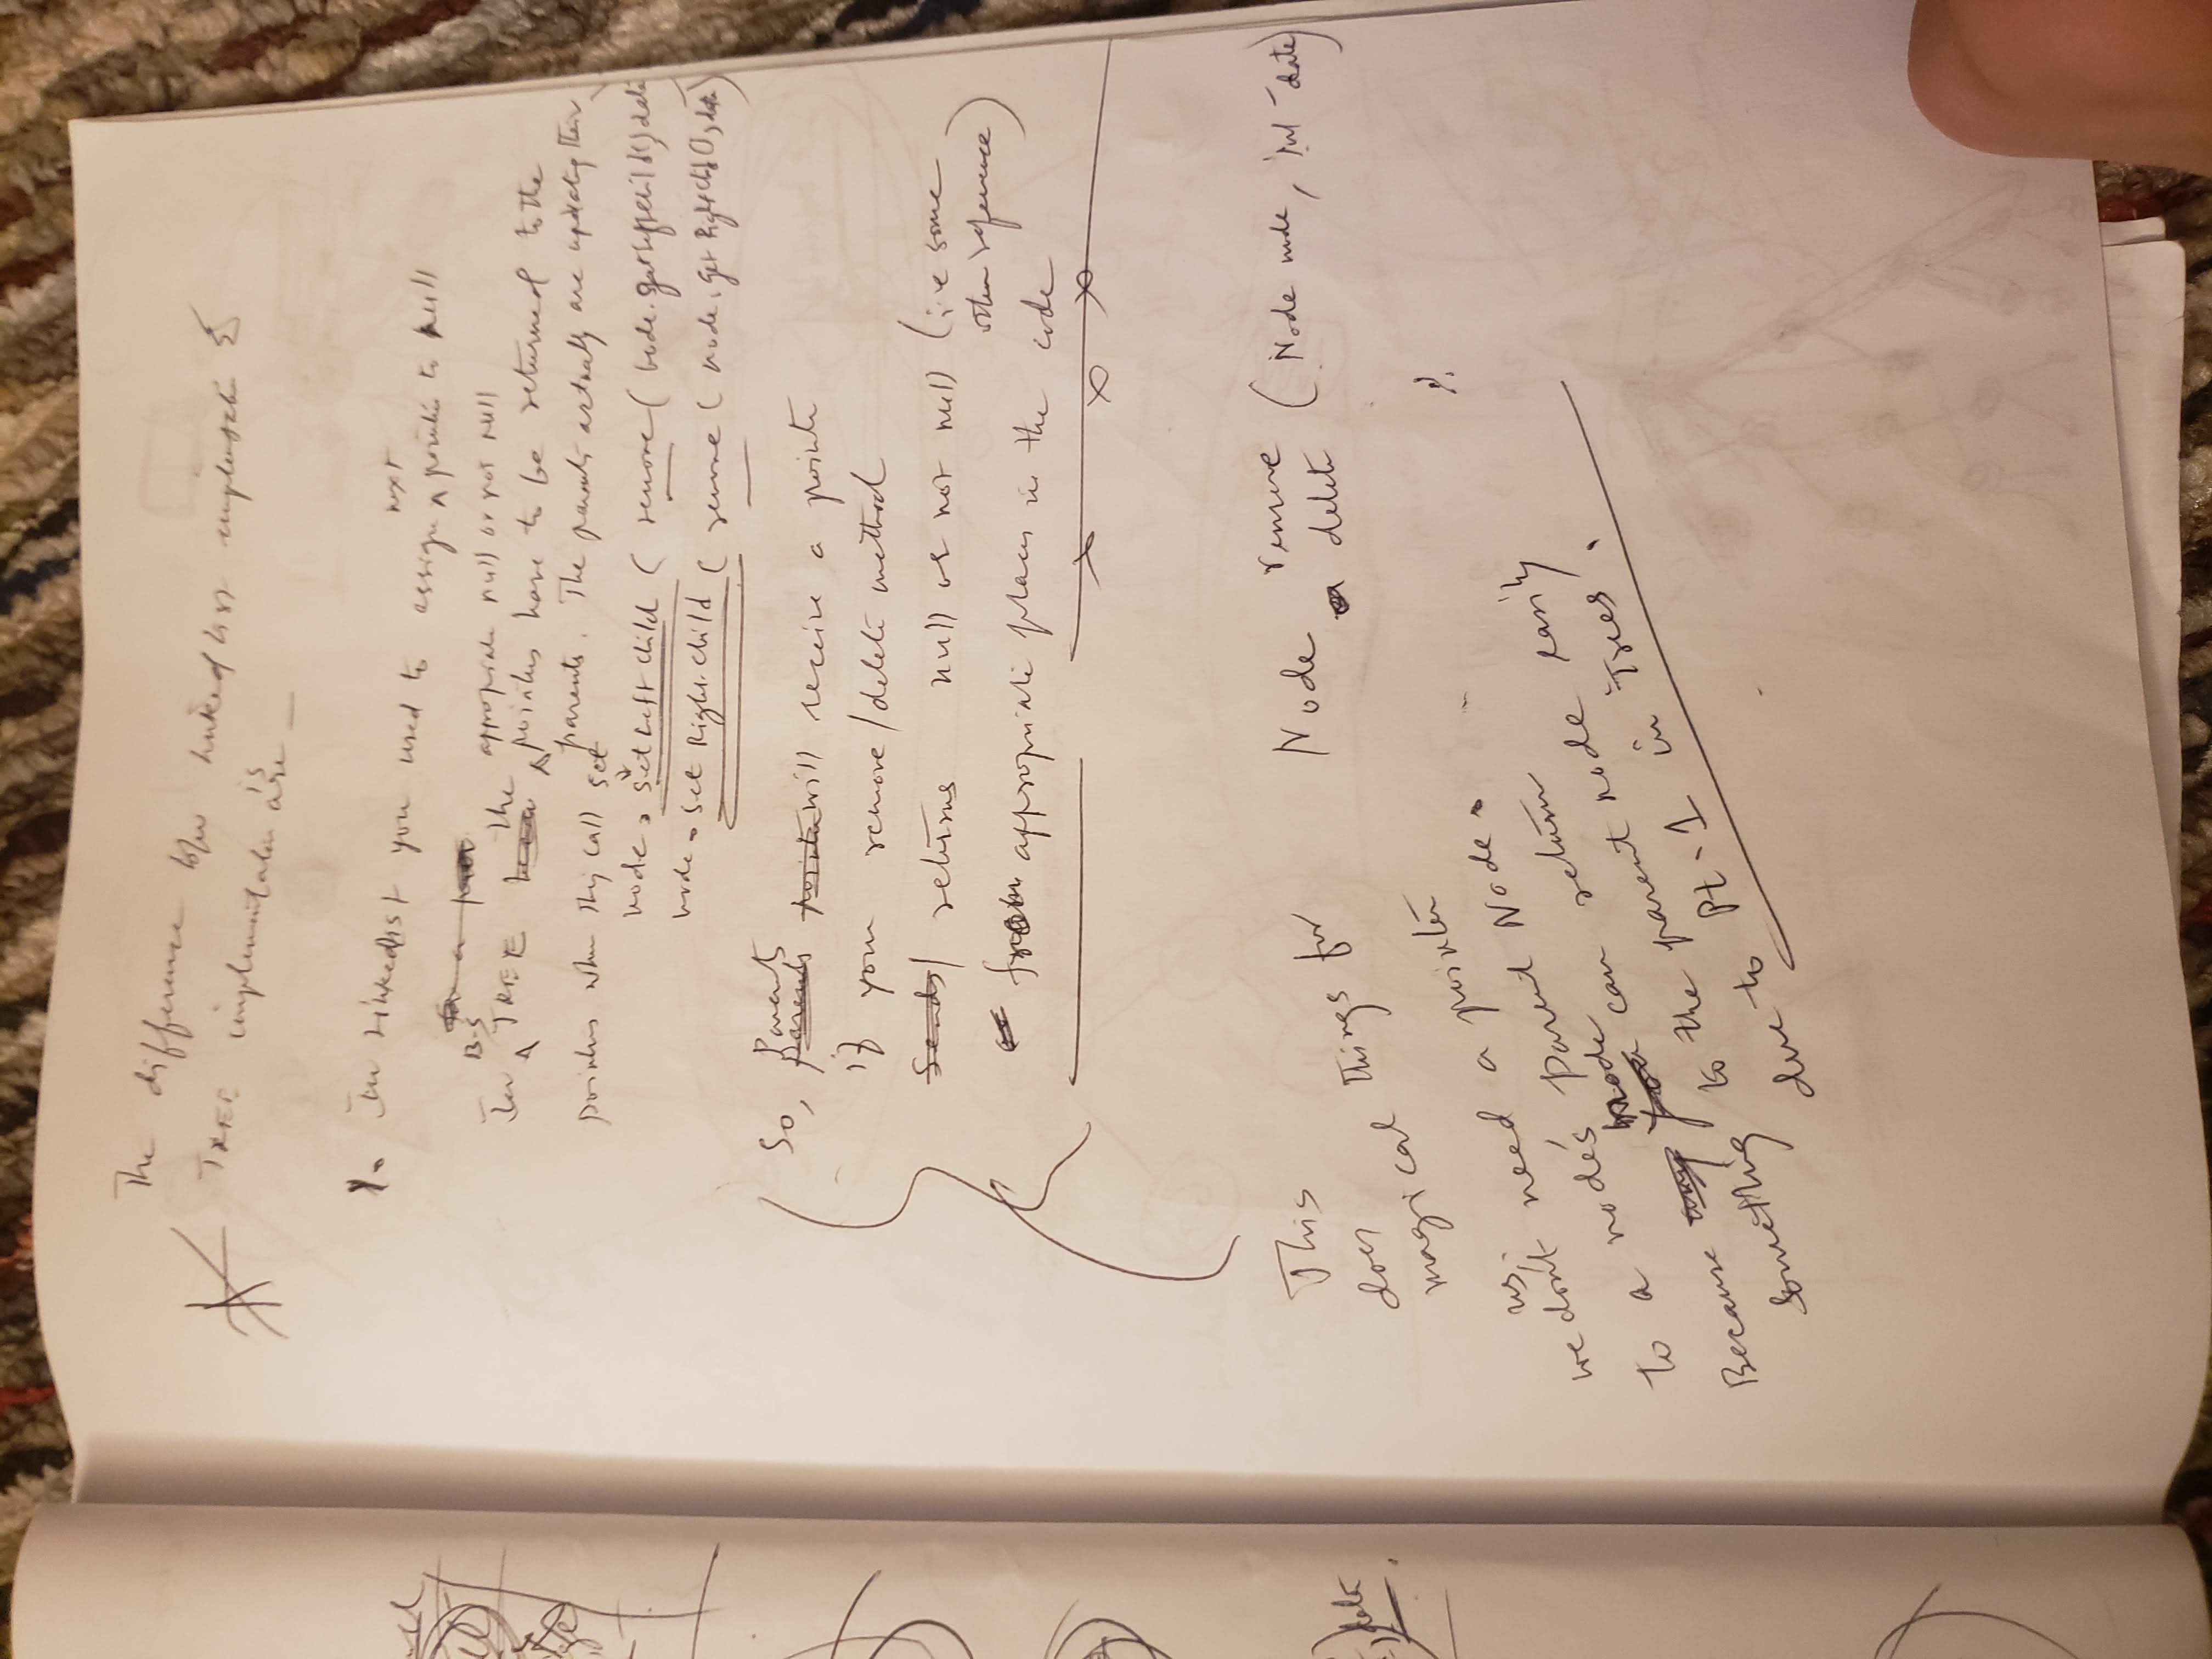 The difference b/w Linked list implementation &
TREE implementation is are —
1. In Linkedlist you used to assign next pointer to null
In B.S TREE the appropriate null or not null
pointers have to be returned to the
parents. The parents actually are updating their
pointers when they call set
node.setLeftChild ( remove ( node.getLeftChild(), data
node.set RightChild ( remove ( node.get RightChild(), data)
So, Parents will receive a pointer
if your remove/delete method
returns null or not null (i.e some
other reference)
from appropriate places in the code
This
does
magical things for
us.
Node remove
delete ( Node node, int data)
we don't need a pointer
to a node's Parent Node.
Because node can return
something to the parent node easily
due to Pt. 1 in Trees.
data